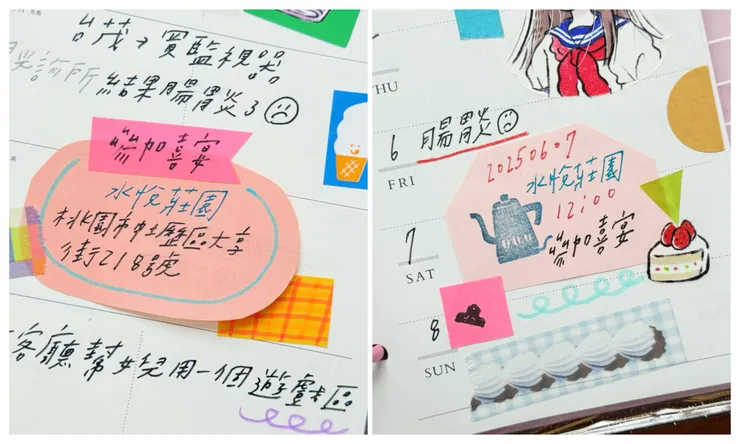 買監視器
診所 結果腸胃炎了
參加喜宴
水悅莊園
桃園市中壢區大享
街218號
客廳幫女兒用一個遊戲區
THU
6 腸胃炎
FRI
20250607
水悅莊園
12:00
參加喜宴
7
SAT
8
SUN